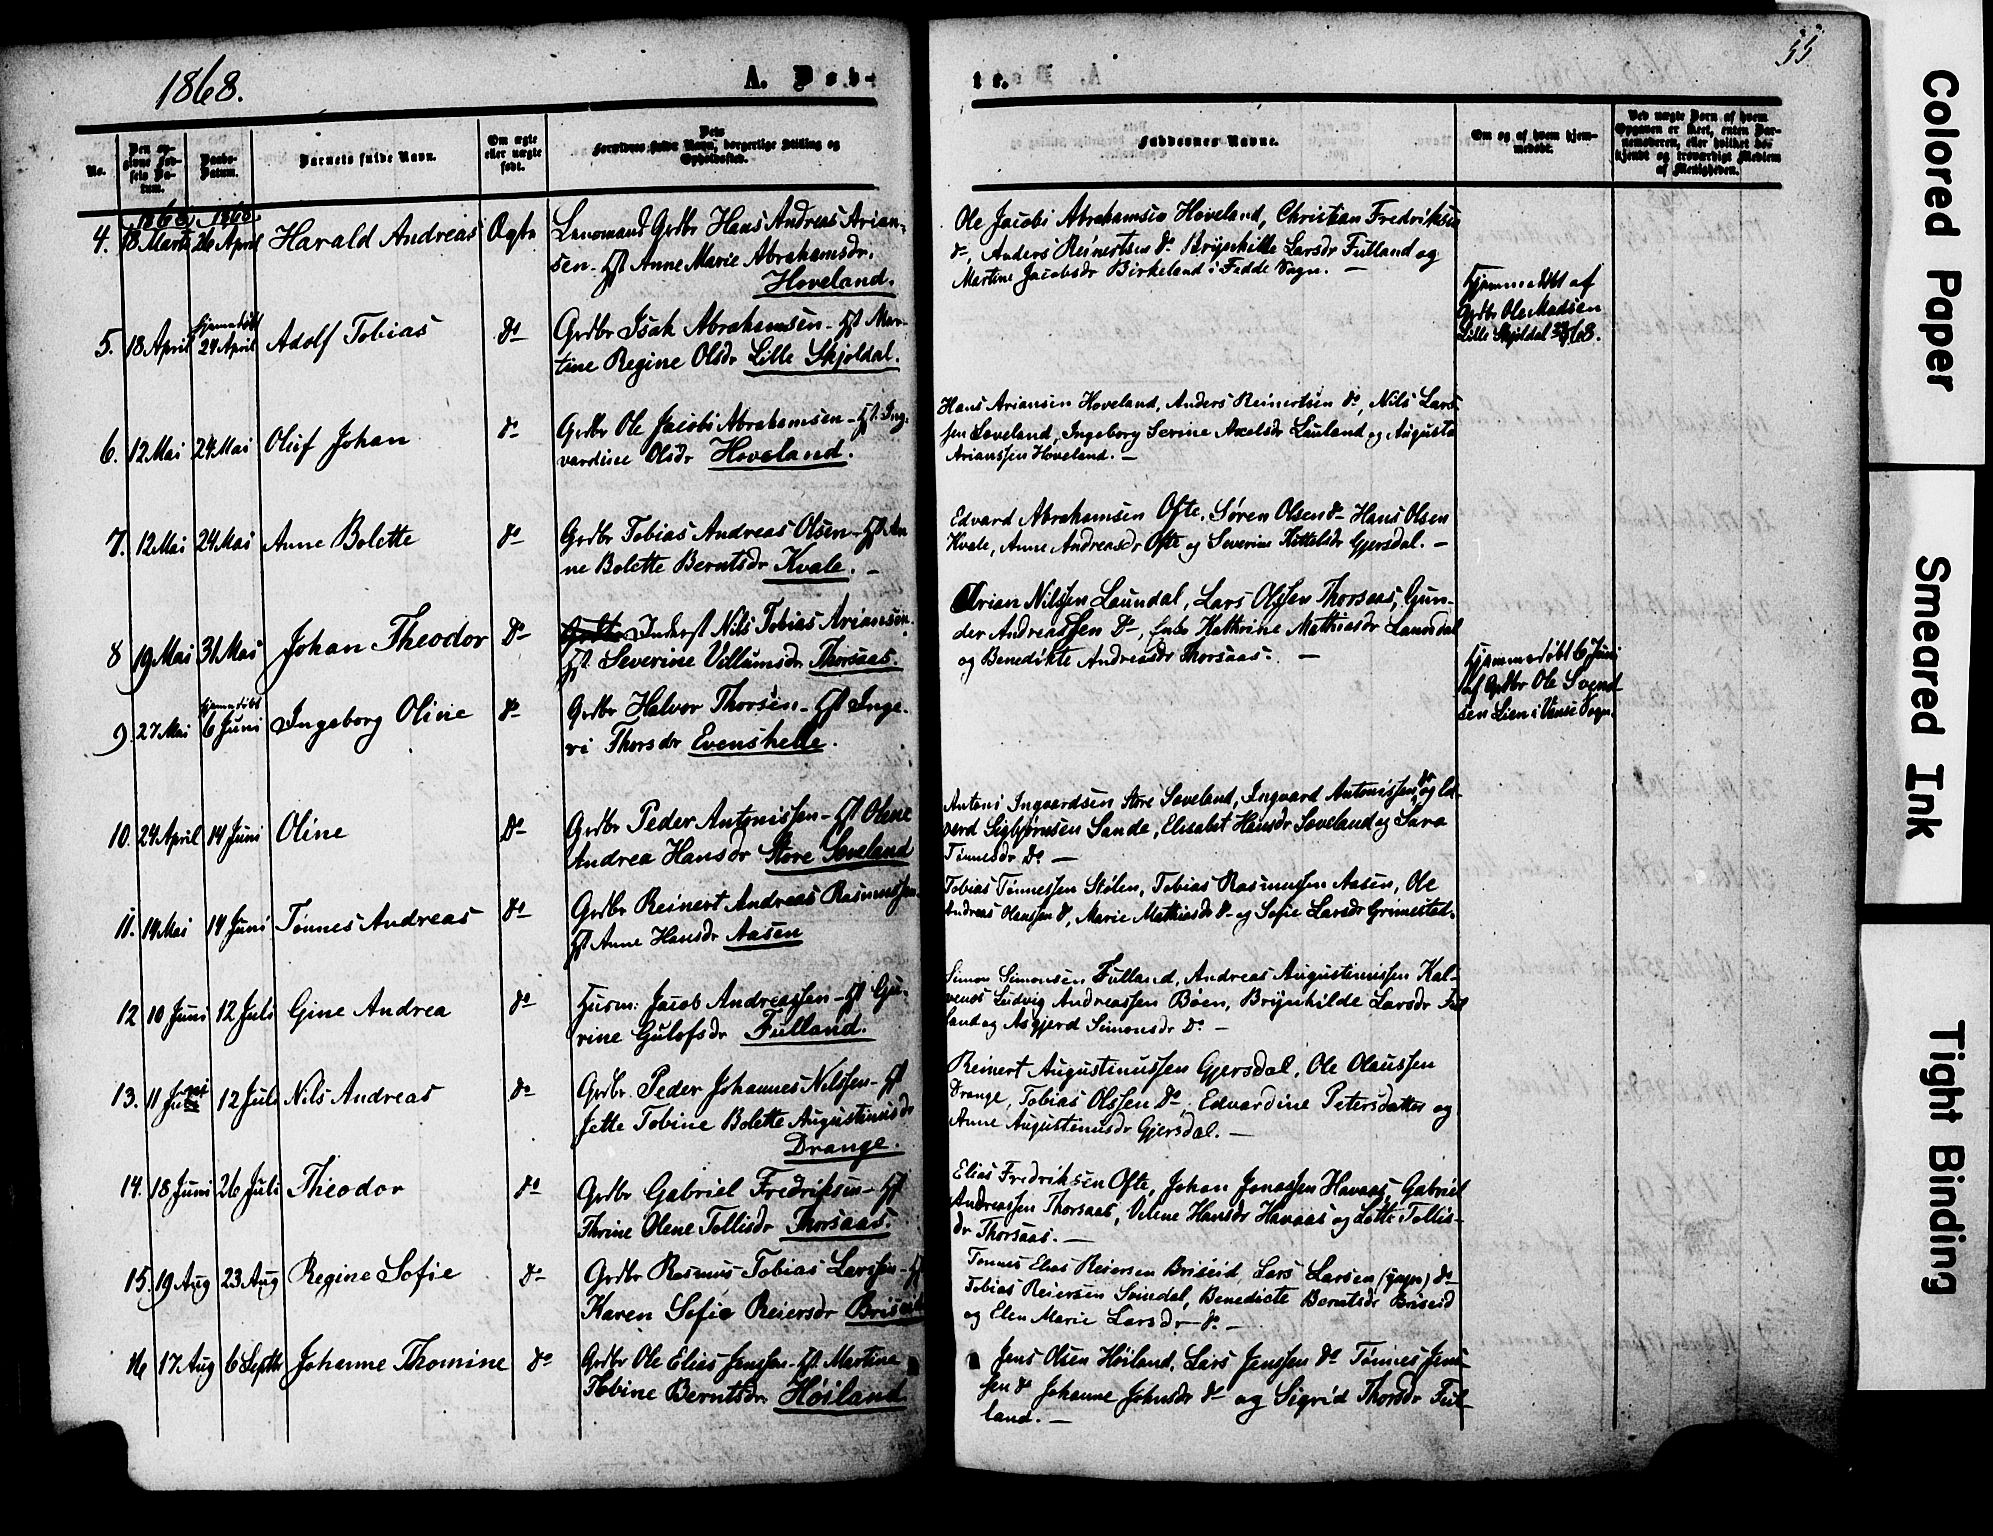 1868.
A. Døb-
te.
55
No.
Den op-
givne Fød-
sels Da-
tum.
Daabs-
Datum.
Barnets fulde Navn.
Om ægte
eller uægte
født.
Dets
Forældres fulde Navn, borgerlige Stilling og
Opholdssted.
Faddernes Navne.
Om og af hvem hjem-
medøbt.
Ved uægte Børn af hvem
Opgaven er skeet, enten Bar-
nemoderen, eller hvilket bekjendt og troværdigt Medlem
af Menigheden.
1868 1868
4. 18 Marts 26 April Harald Andreas Ægte Lensmand Grdbr Hans Andreas Arian-
sen - Hst Anne Marie Abrahamsdr.
Hoveland.
Ole Jacobi Abrahamsen Hoveland, Christian Fredriksen
do, Anders Reinertsen do Brynhilde Larsdr Fulland og
Martine Jacobsdr Birkeland i Fedde Sogn. -
5. 18 April hjemmedøbt 24 April Adolf Tobias do Grdbr Isak Abrahamsen - Hst Mar-
tine Regine Olsdr Lille Skjoldal.
Hjemmedøbt af
Grdbr Ole Madsen
Lille Skjoldal 24/4 68.
6. 12 Mai 24 Mai Oluf Johan do Grdbr Ole Jacobi Abrahamsen - Hst. Ing-
vardine Olsdr Hoveland.
Hans Ariansen Hoveland, Anders Reinertsen do, Nils Lars-
sen Soveland, Ingeborg Serine Axelsdr Lauland og Augusta
Arianssen Hoveland. -
7. 12 Mai 24 Mai Anne Bolette do Grdbr Tobias Andreas Olsen - Hst An-
ne Bolette Berntsdr Kvale. -
Edvard Abrahamsen Ofte, Søren Olsen do Hans Olsen
Kvale, Anne Andreasdr Ofte og Severine Kittelsdr Gjersdal. -
8 19 Mai 31 Mai Johan Theodor do Grdbr Inderst Nils Tobias Ariansen.
Hst Severine Villumsdr Thorsaas.
Arian Nilssen Laundal, Lars Olssen Thorsaas, Gun-
der Andreassen do, Enke Kathrine Mathiasdr Laundal
og Benedikte Andreasdr Thorsaas. -
9. 27 Mai hjemmedøbt 6 Juni Ingeborg Oline do Grdbr Halvor Thorsen - Hst Inge-
ri Thorsdr Evenshelle.
Hjemmedøbt 6 Juni
af Grdbr Ole Svend-
sen Lien i Vanse Sogn.
10. 24 April 14 Juni Oline do Grdbr Peder Antonissen - Hst Olene
Andrea Hansdr Store Soveland
Antoni Ingvardsen Store Soveland, Ingvard Antonissen do og Ed-
verd Sigbjørnsen Sande, Elisabet Hansdr Soveland og Sara
Tønnesdr do -
11. 19 Mai 14 Juni Tønnes Andreas do Grdbr Reinert Andreas Rasmussen
Hst Anne Hansdr Aasen
Tobias Tønnessen Stølen, Tobias Rasmussen Aasen, Ole
Andreas Hanssen do, Marie Mathiasdr do og Sofie Larsdr Grimestad.
12 10 Juni 12 Juli Gine Andrea do Husm: Jacob Andreassen - Hst Gu-
rine Gulofsdr Fulland.
Simon Simonsen Fulland, Andreas Augustinussen Kal-
venes Ludvig Andreassen Bøen, Brynhilde Larsdr Ful-
land og Asgjerd Simonsdr do -
13. 11 Juni 12 Juli Nils Andreas do Grdbr. Peder Johannes Nilssen - Hst
Jette Tobine Bolette Augustinusdr
Drange.
Reinert Augustinussen Gjersdal, Ole Olaussen
Drange, Tobias Olssen do, Edvardine Petersdatter og
Anne Augustinusdr Gjersdal. -
14. 18 Juni 26 Juli Theodor do Grdbr Gabriel Fredriksen - Hst
Thrine Olene Tollisdr Thorsaas.
Elias Fredriksen Ofte, Johan Jonassen Havaas, Gabriel
Andreassen Thorsaas, Velene Hansdr Havaas og Lotte Tollis-
dr Thorsaas. -
15. 19 Aug 23 Aug Regine Sofie do Grdbr Rasmus Tobias Larssen - Hst
Karen Sofie Reiersdr Briseid
Tønnes Elias Reiersen Briseid, Lars Larsen (yngre) do
Tobias Reiersen Svindal, Benedicte Berntsdr Briseid
og Elen Marie Larsdr - do -
16 17 Aug 6 Septbr Johanne Thomine do Grdbr Ole Elias Jenssen - Hst Martine
Tobine Berntsdr Høiland
Jens Olsen Høiland, Lars Jenssen do Tønnes Jens-
sen do Johanne Johnsdr do og Sigrid Thorsdr Ful-
land. -
Colored Paper
Smeared Ink
Tight Binding